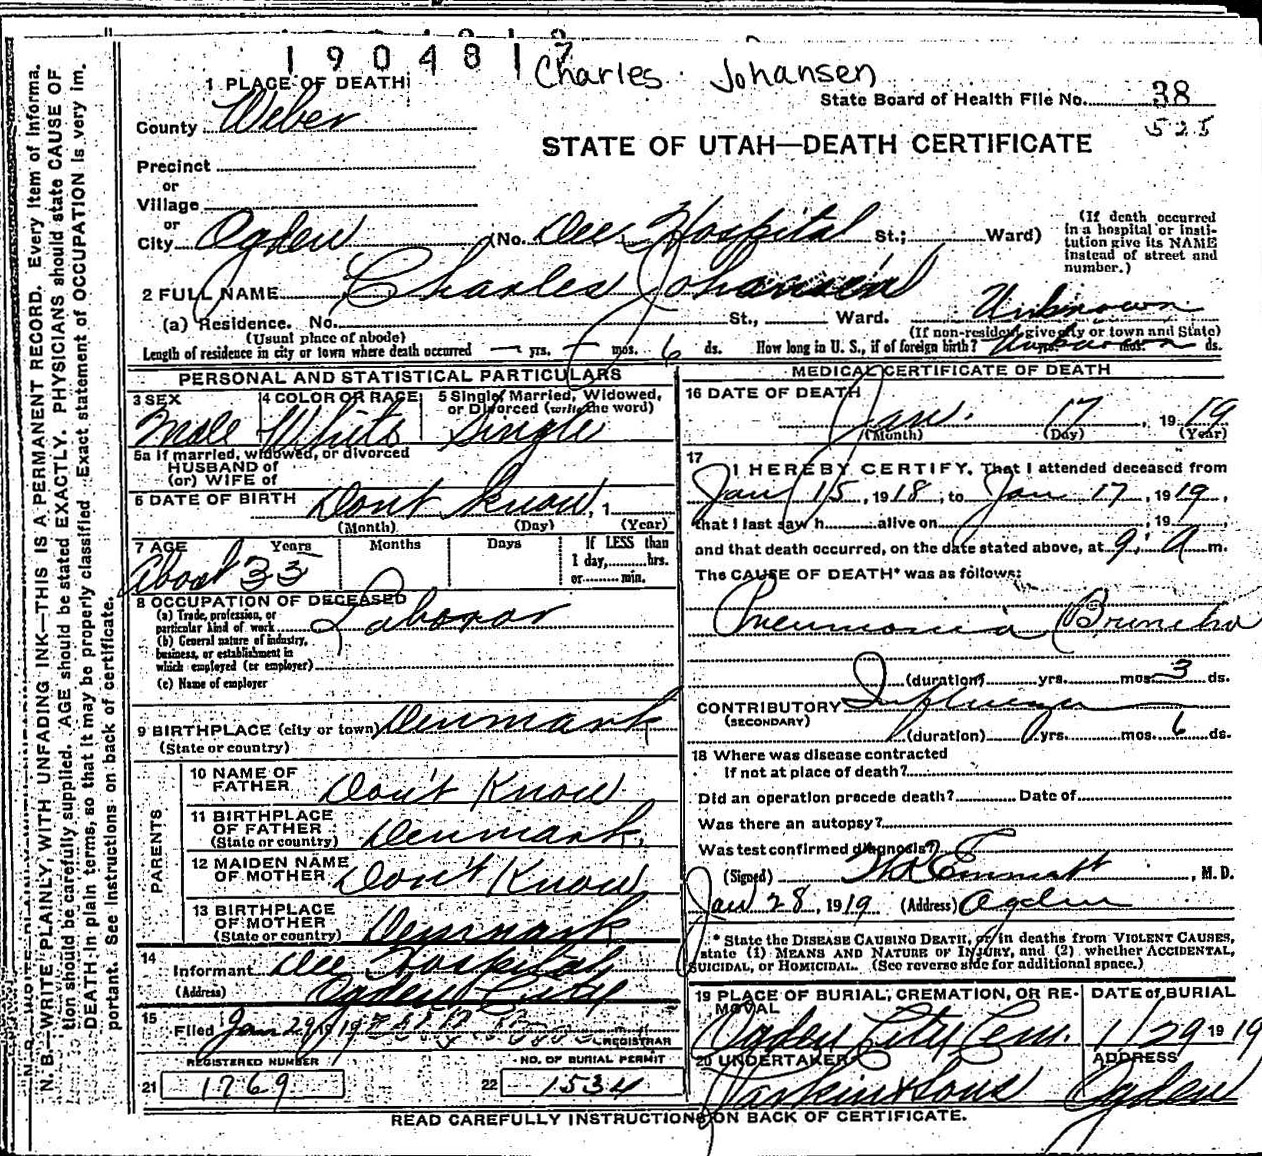 1904817 Charles Johansen
1 PLACE OF DEATH
State Board of Health File No. 38
525
County Weber
STATE OF UTAH—DEATH CERTIFICATE
Precinct
or
Village
or
City Ogden (No. Dee Hospital St.; Ward)
(If death occurred in a hospital or insti-
tution give its NAME
instead of street and
number.)
2 FULL NAME Charles Johansen
(a) Residence. No. St., Ward. Unknown
(Usual place of abode) (If non-resident give city or town and State)
Length of residence in city or town where death occurred — yrs. — mos. 6 ds. How long in U. S., if of foreign birth? Unknown yrs. mos. ds.
PERSONAL AND STATISTICAL PARTICULARS
3 SEX Male
4 COLOR OR RACE White
5 Single, Married, Widowed,
or Divorced (write the word)
Single
5a If married, widowed, or divorced
HUSBAND of
(or) WIFE of
6 DATE OF BIRTH Don't Know, 1
(Month) (Day) (Year)
7 AGE Years Months Days If LESS than
1 day, hrs.
or min.
About 33
8 OCCUPATION OF DECEASED
(a) Trade, profession, or
particular kind of work Laborer
(b) General nature of industry,
business, or establishment in
which employed (or employer)
(c) Name of employer
9 BIRTHPLACE (city or town) Denmark
(State or country)
PARENTS
10 NAME OF
FATHER Don't Know
11 BIRTHPLACE
OF FATHER Denmark
(State or country)
12 MAIDEN NAME
OF MOTHER Don't Know
13 BIRTHPLACE
OF MOTHER Denmark
(State or country)
14
Informant Dee Hospital
(Address) Ogden City
15
Filed Jan 29 1919
REGISTRAR
REGISTERED NUMBER
21 1769
NO. OF BURIAL PERMIT
22 1534
MEDICAL CERTIFICATE OF DEATH
16 DATE OF DEATH
Jan. 17, 1919
(Month) (Day) (Year)
17
I HEREBY CERTIFY, That I attended deceased from
Jan 15, 1918, to Jan 17, 1919,
that I last saw h alive on , 19 ,
and that death occurred, on the date stated above, at 9 A m.
The CAUSE OF DEATH* was as follows:
Pneumonia Broncho
(duration) yrs. mos. 3 ds.
CONTRIBUTORY Influenza
(SECONDARY)
(duration) yrs. mos. 6 ds.
18 Where was disease contracted
If not at place of death?
Did an operation precede death? Date of
Was there an autopsy?
Was test confirmed diagnosis?
(Signed) Emmett, M. D.
Jan 28, 1919 (Address) Ogden
* State the DISEASE CAUSING DEATH, or in deaths from VIOLENT CAUSES,
state (1) MEANS AND NATURE OF INJURY, and (2) whether ACCIDENTAL,
SUICIDAL, or HOMICIDAL. (See reverse side for additional space.)
19 PLACE OF BURIAL, CREMATION, OR RE-
MOVAL
Ogden City Cem.
DATE of BURIAL
1/29 1919
20 UNDERTAKER
Larkin & Sons
ADDRESS
Ogden
READ CAREFULLY INSTRUCTIONS ON BACK OF CERTIFICATE.
N. B.—WRITE PLAINLY, WITH UNFADING INK—THIS IS A PERMANENT RECORD. Every item of informa-
tion should be carefully supplied. AGE should be stated EXACTLY. PHYSICIANS should state CAUSE OF
DEATH in plain terms, so that it may be properly classified. Exact statement of OCCUPATION is very im-
portant. See instructions on back of certificate.